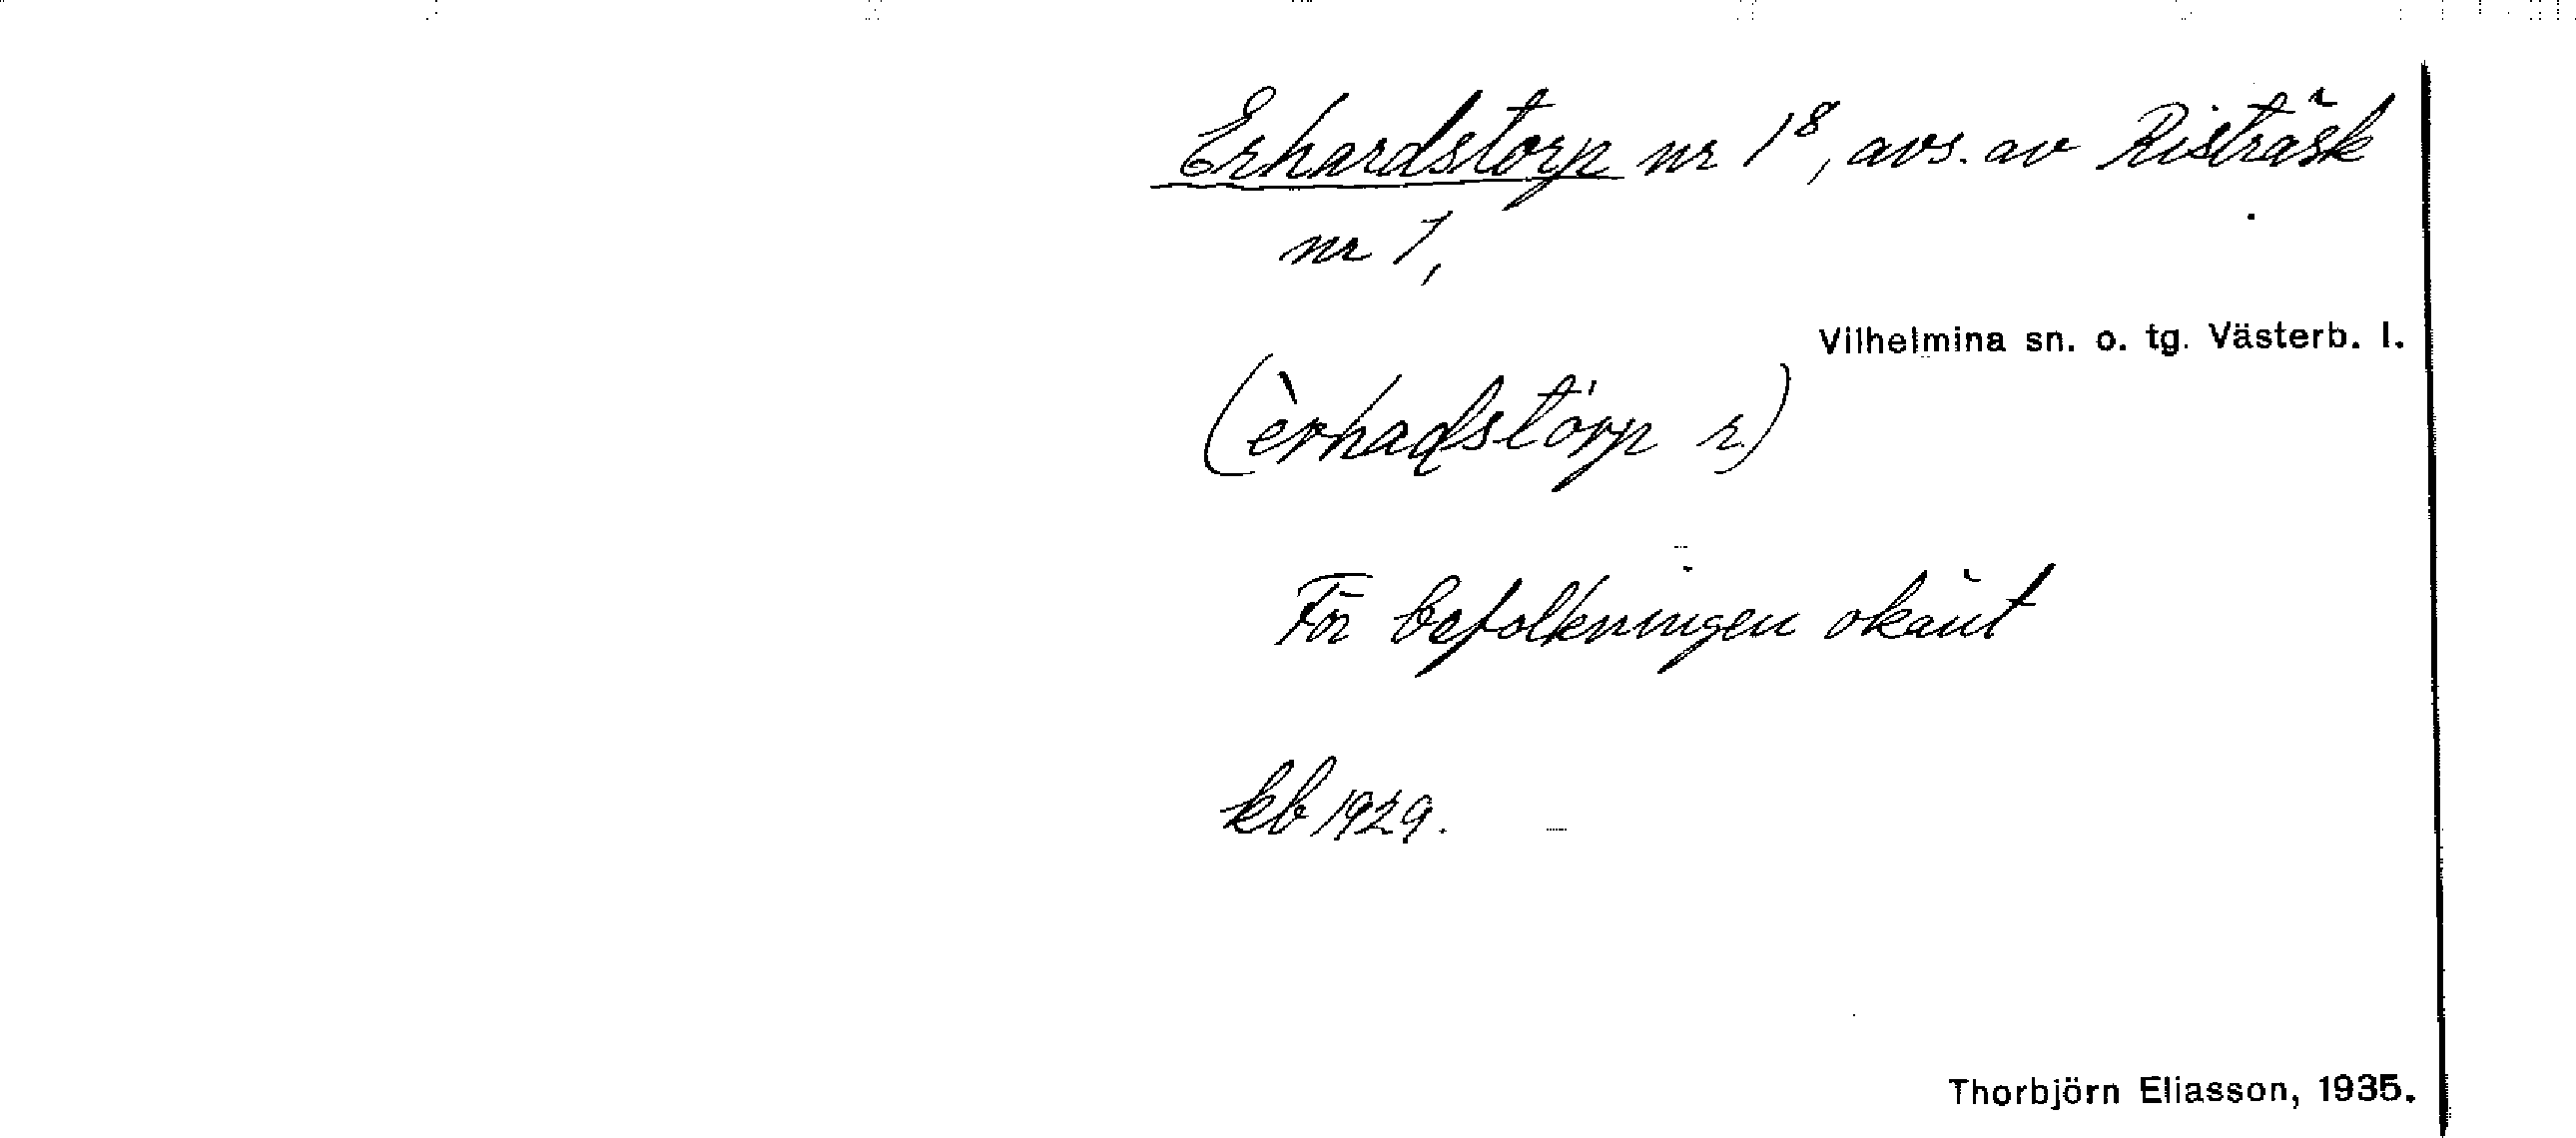 Erhardstorp nr 1⁸, avs. av Risträsk
nr 1,
Vilhelmina sn. o. tg. Västerb. l.
(èrhaḍstórp r.)
För befolkningen okänt
kb 1929.
Thorbjörn Eliasson, 1935.